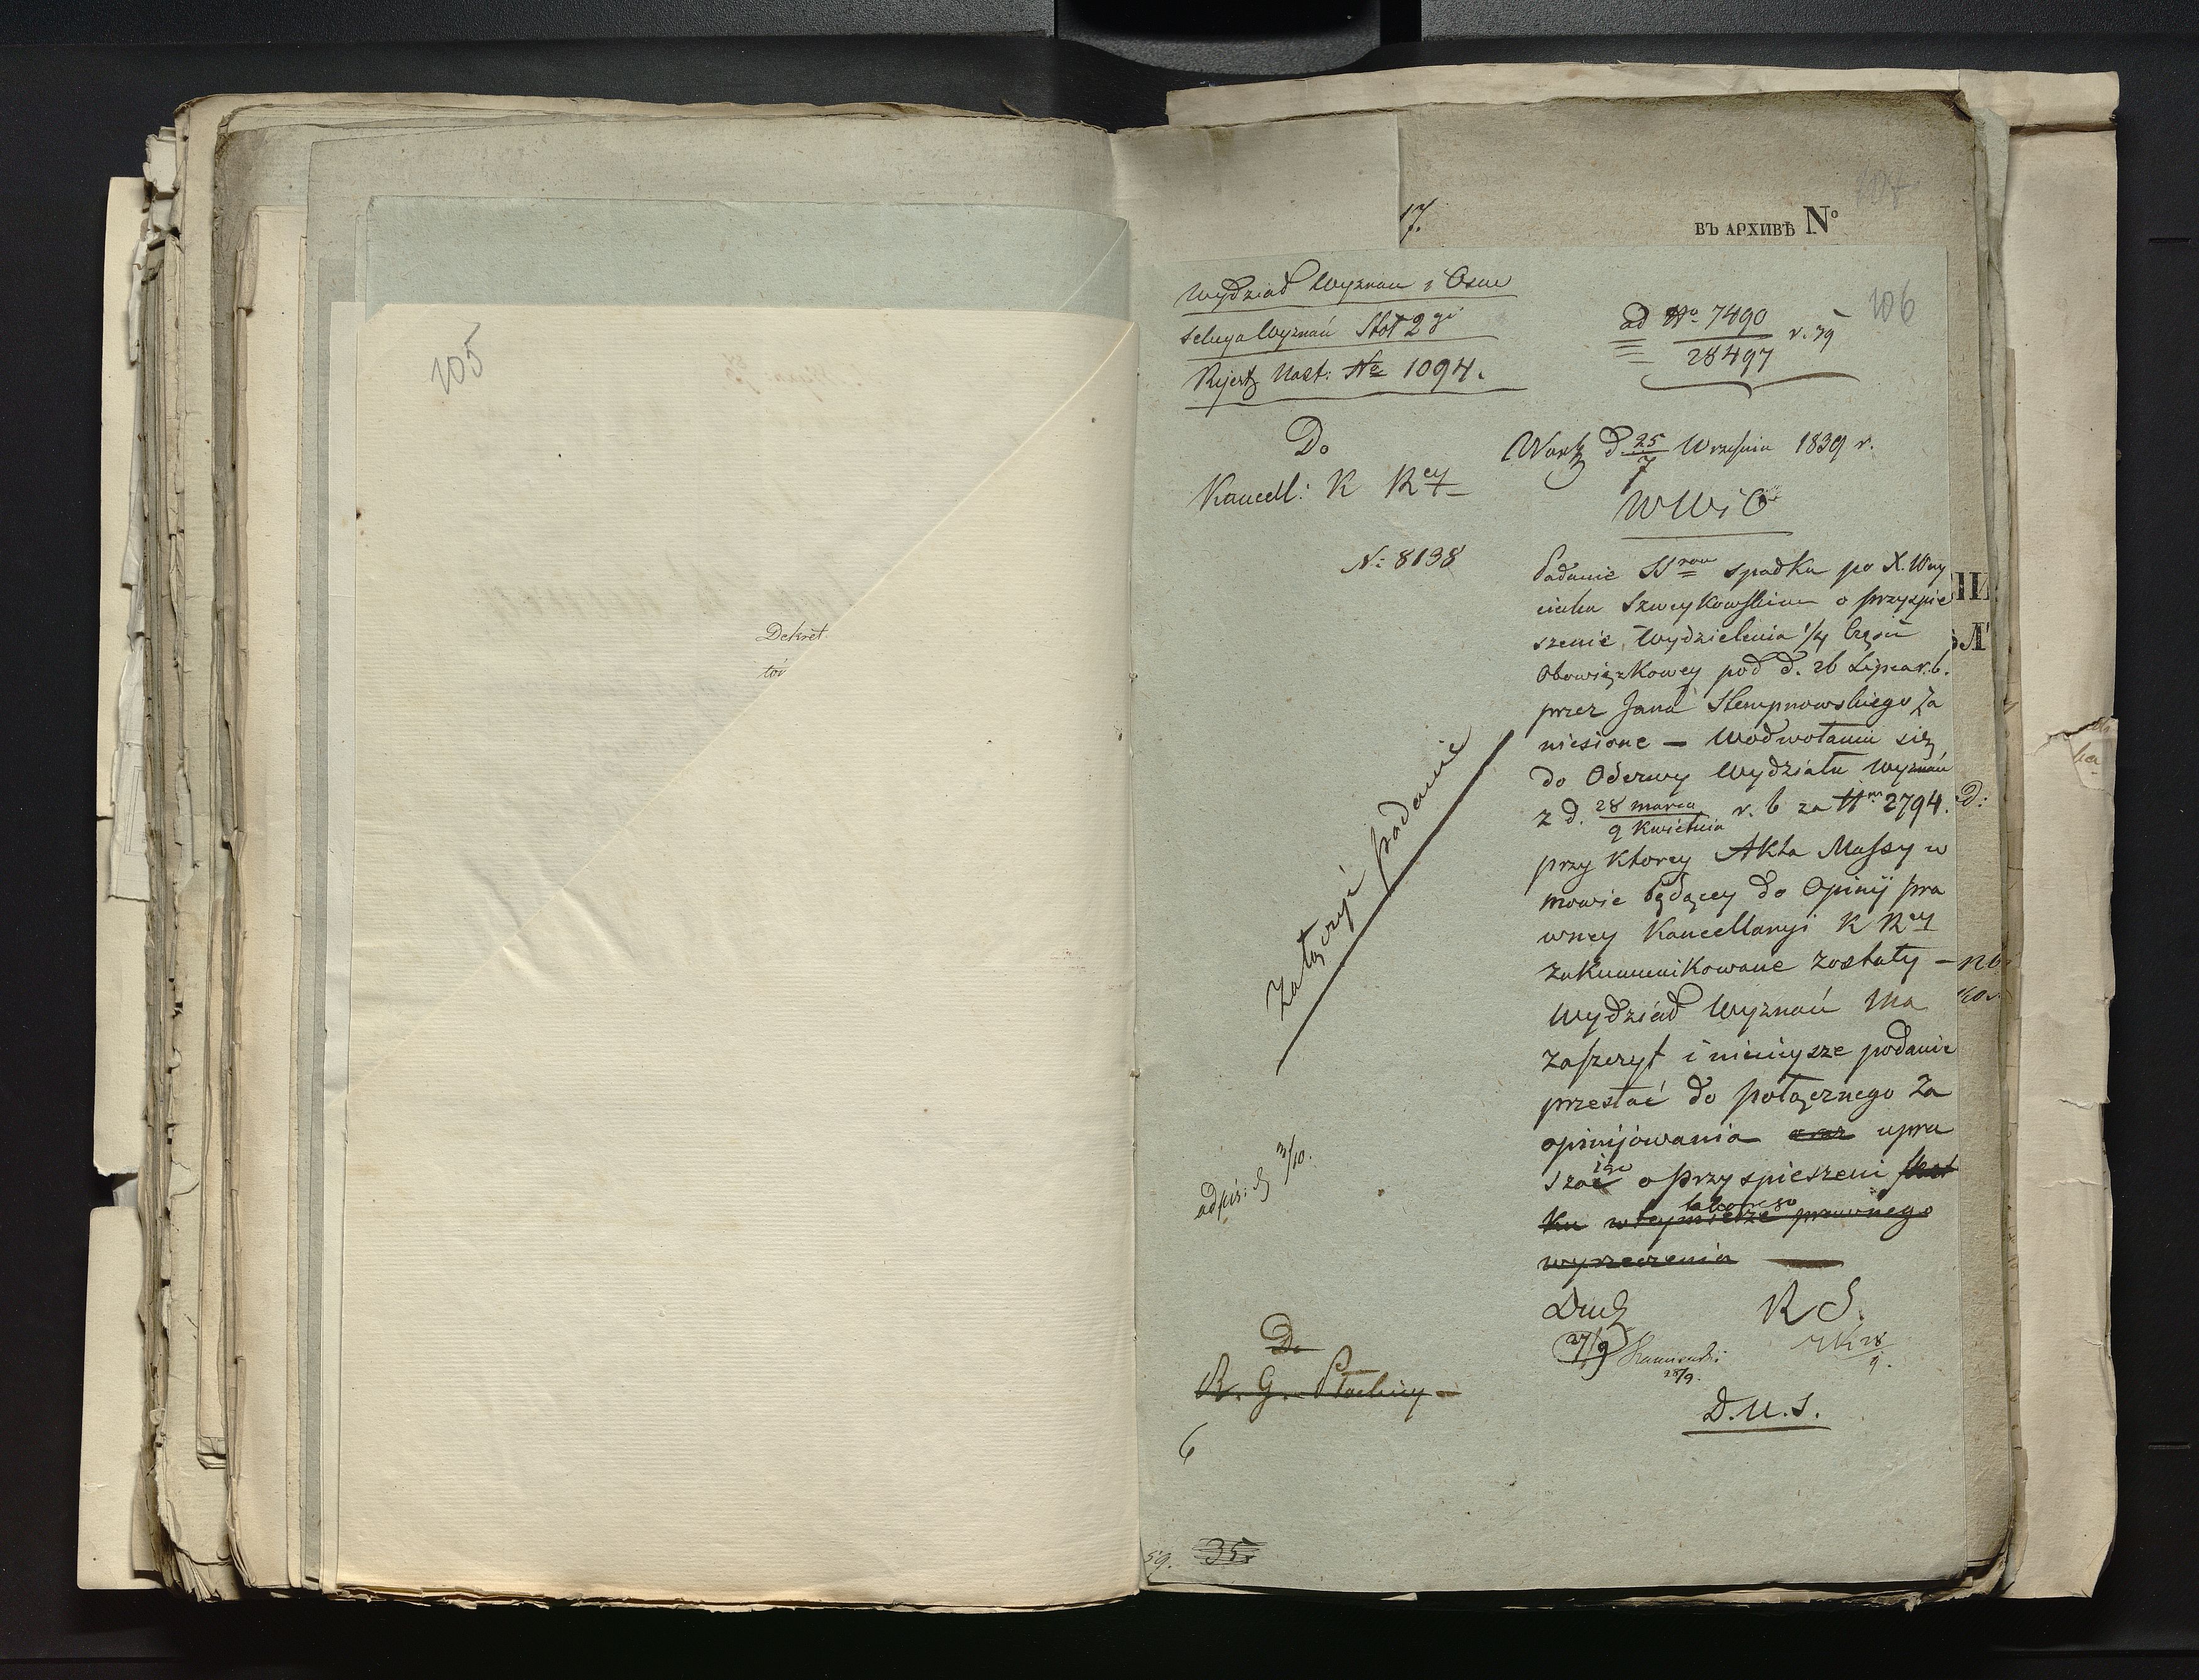 105
Dekret
tów
17.
107
ВЪ АРХИВѢ №
106
Wydział Wyznań i Oświe
Sekcya Wyznań Stół 2gi
Rejestr Nast: No 1094.
ad No 7490
28497 r. 39
Do
Kancell: K Rey
No 8138
Warsz d 25/7 Września 1839 r.
W W i O
Podanie SSrow spadku po X. Woy
ciechu Szweykowskim o przyspie
szenie Wydzielenia 1/4 Części
Obowiązkowey pod d. 26 Lipca r. b.
przez Jana Stempnowskiego Za
niesione — W odwołaniu się
do Odezwy Wydziału Wyznań
z d. 28 marca / 9 Kwietnia r. b za Nrem 2794.
przy ktorey Akta Massy w
mowie będącey do Opinij pra
wney Kancellaryi K Rey
zakommunikowane zostały —
Wydział Wyznań ma
Zaszczyt i ninieysze podanie
przesłać do połącznego Za
opinijowania oraz upra
szaiąc o przyspieszeni skut
takowego
ku w tey mierze prawnego
wyrzeczenia
Załączyć podanie
odpis: d 3/10.
R S.
27/9
28/9.
28
9.
D. U. S.
Do
R. G. Płockiey
6
59. 35.